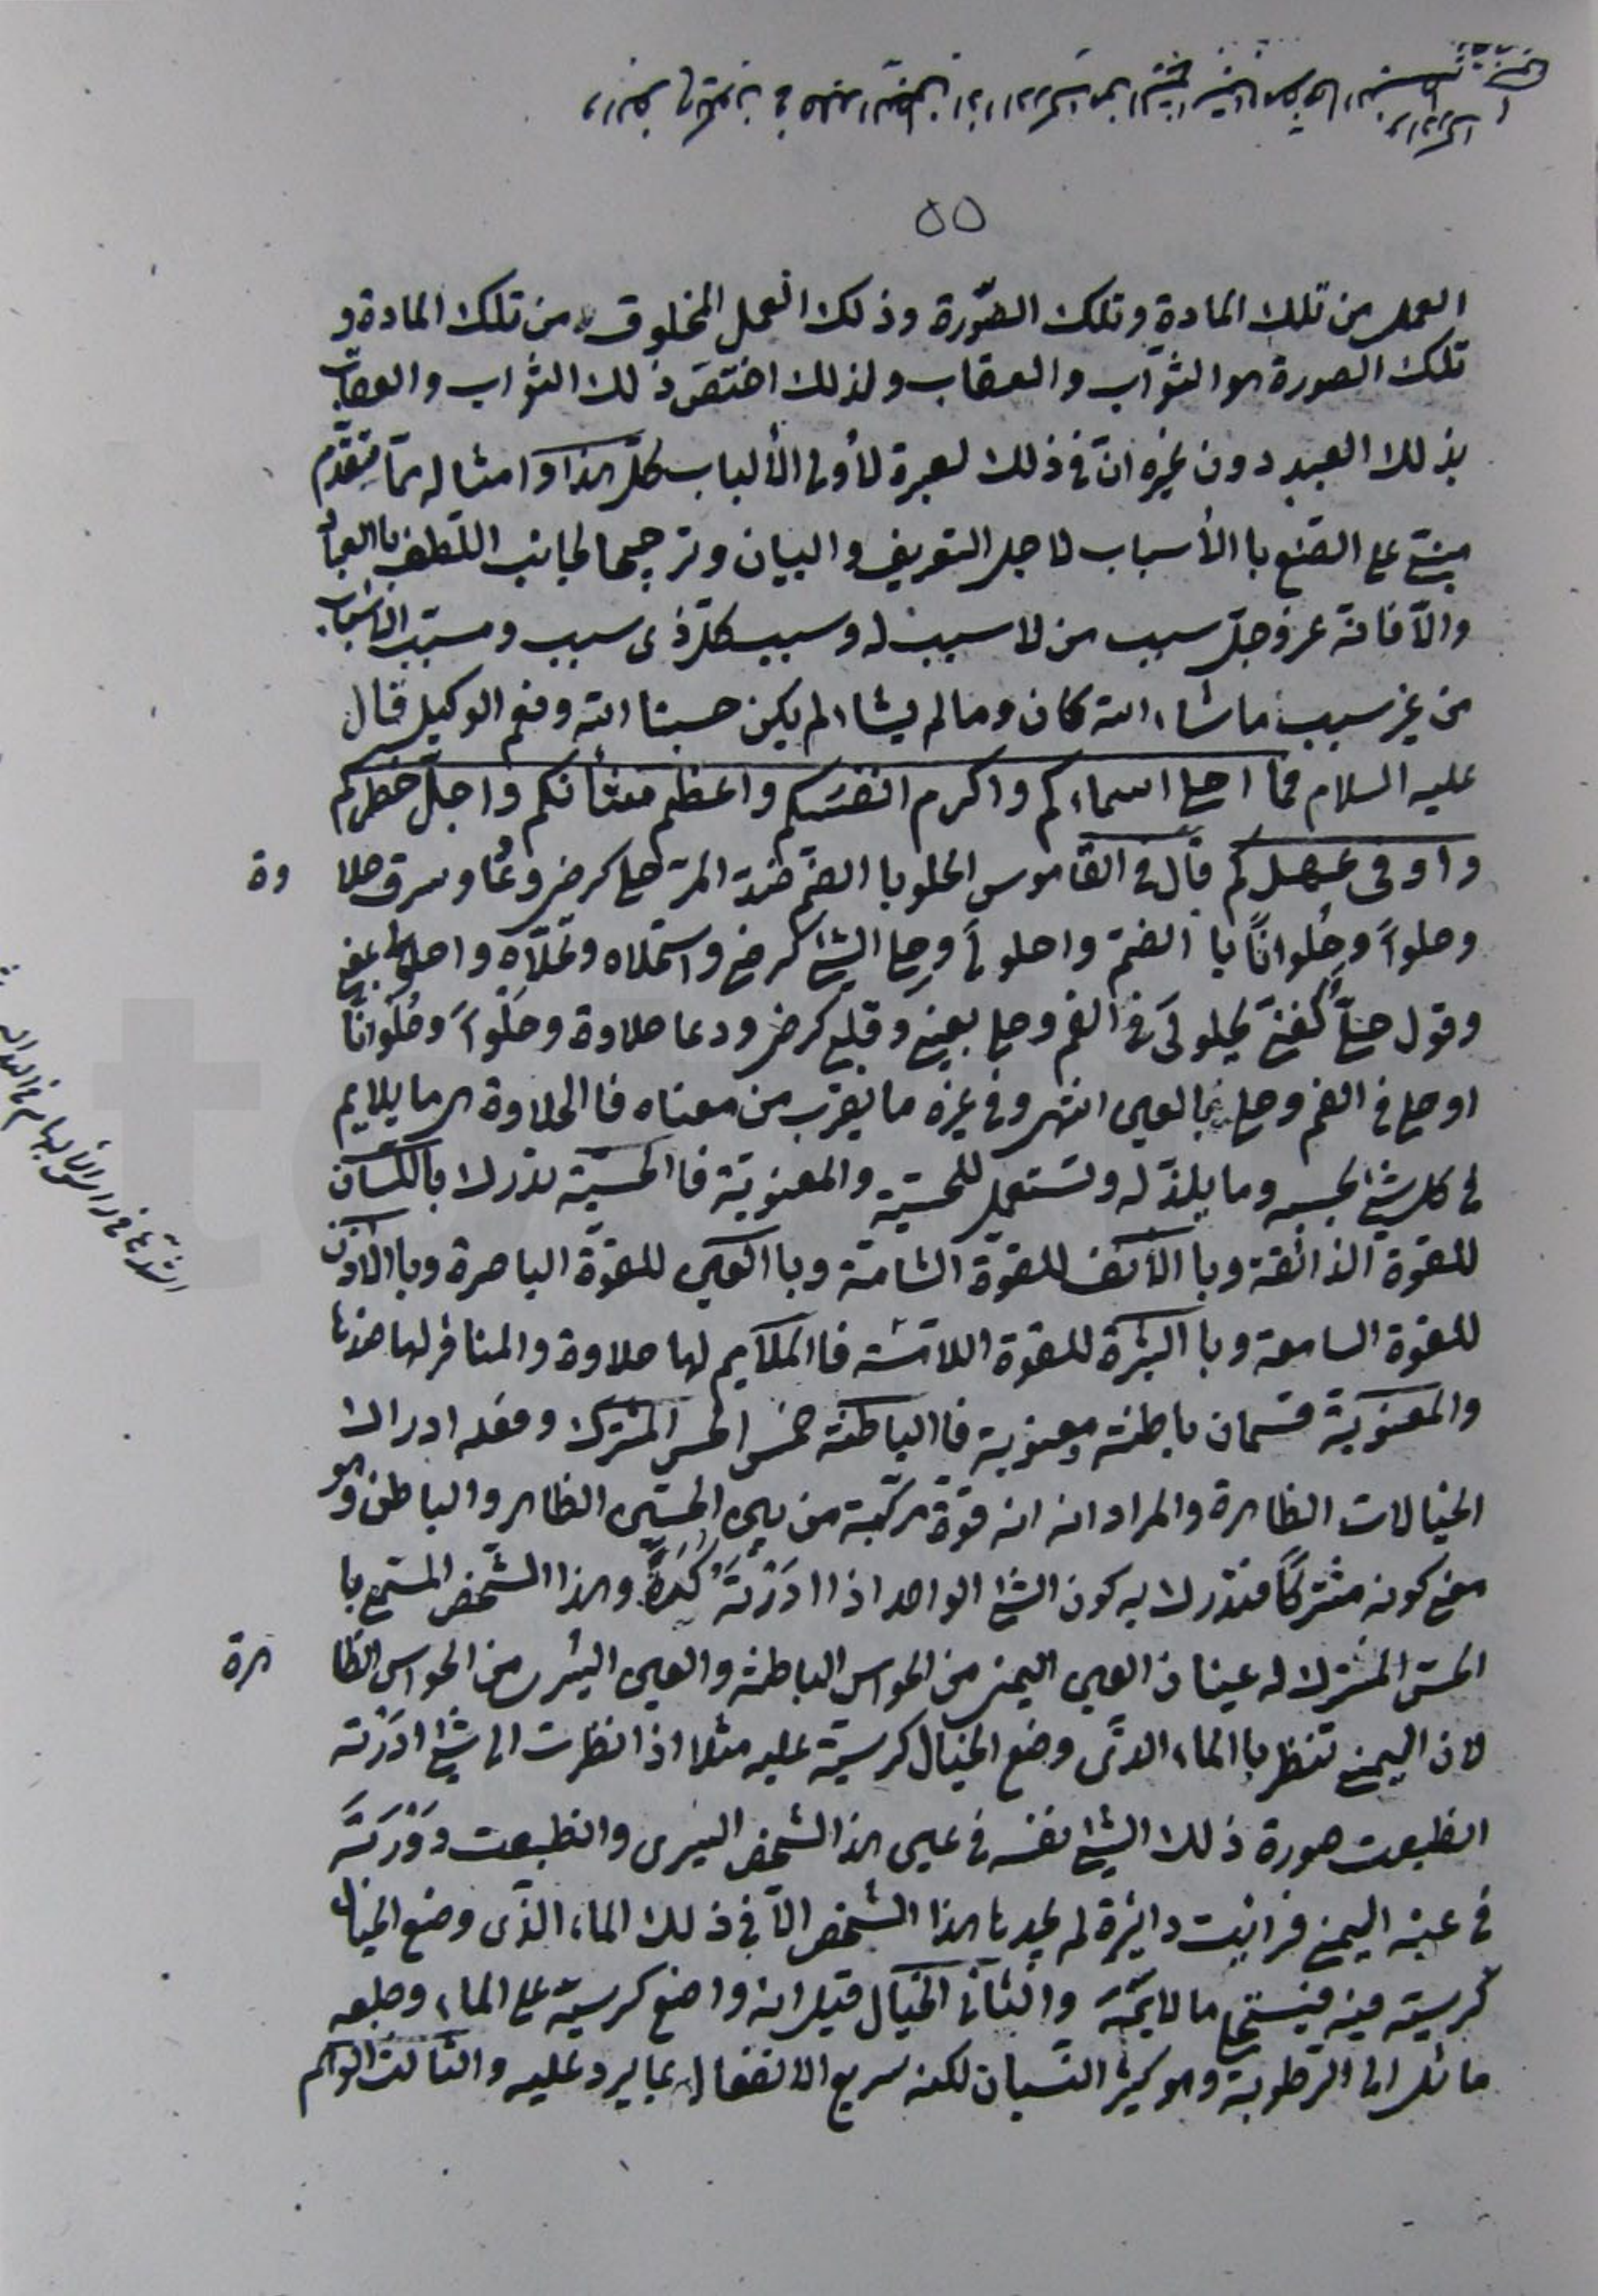 ٥٥
العمل من تلك المادة وتلك الصّورة وذلك العمل المخلوق من تلك المادة و
تلك الصورة هو الثوّاب والعقاب ولذلك اختصّ ذلك الثوّاب والعقاب
بذلك العبد دون غيره انّ في ذلك لعبرة لأولى الألباب كلّ هذا وامثاله ممّا يتقدّم
مبنىّ على الصّنع با الأسباب لاجل التعريف والبيان وترجيحا لجانب اللّطف با العباد
والاّ فانه عزوجلّ سبب من لا سبب له وسبب كلّ ذى سبب ومسبّب الاسباب
من غير سبب ماشاء الله كان ومالم يشاء لم يكن حسبنا الله ونعم الوكيل قال
عليه السلام فما احلى اسماءكم واكرم انفسكم واعظم شأنكم واجلّ خطركم
واوفى عهدكم قال في القاموس الحلو با الضّم ضدّ المرّ حلى كرضى ودعا وسرو حلا
وة
وحلواً وحُلواناً با الضمّ واحلولى وحلى الشئ كرضى واستحلاه وتحلاّه واحلولاه بمعنى
وقول حلىّ كغنىّ يحلولى في الفم وحلى بعينى وقلبى كرضى ودعا حلاوة وحلواً وحُلواناً
اوحلى في الفم وحلى بالعين انتهى وفي غيره ما يقرب من معناه فا الحلاوة هى ما يلايم
في كل شئ بحسبه وما يلذّ له وتستعمل للحسّية والمعنويّة فا الحسّية تدرك با اللّسان
للقوة الذائقة وبا الأنف للقوة الشامّة وبا العين للقوّة الباصرة وبا الاذن
للقوة السامعة وبا البشرة للقوة اللامّسة فا الملايم لها حلاوة والمنافر لها ضدّها
والمعنويّة قسمان باطنة ومعنوية فا الباطنة خمس الحس المشترك وفعله ادراك
الخيالات الظاهرة والمراد انه انه قوّة مركّبة من بين الحسّين الظاهر والباطن وهو
معنى كونه مشتركاً فتدرك به كون الشئ الواحد اذا ادرْتَهُ كُرَةً وهذا الشّخص المسّمى با
الحسّ المشترك له عينان العين اليمنى من الحواس الباطنة والعين اليسرى من الحواس الظا
هرة
لان اليمنى تنظر با الماء الذّى وضع الخيال كرسيّه عليه مثلا اذا نظرت الى شئ ادرْته
انطبعت صورة ذلك الشئ نفسه في عين هذا الشّخص اليسرى وانطبعت دَوْرَتُهُ
في عينه اليمنى فرايت دائرة لم يجدها هذا الشّخص الاّ في ذلك الماء الذّى وضع الخيال
كرسيّه فيه والثّانى الخيال قيل انه واضع كرسيّه على الماء وطبعه
مائل الى الرّطوبة وهو كثير النّسيان لكنه سريع الانفعال بما يرد عليه والثّالث الوهم